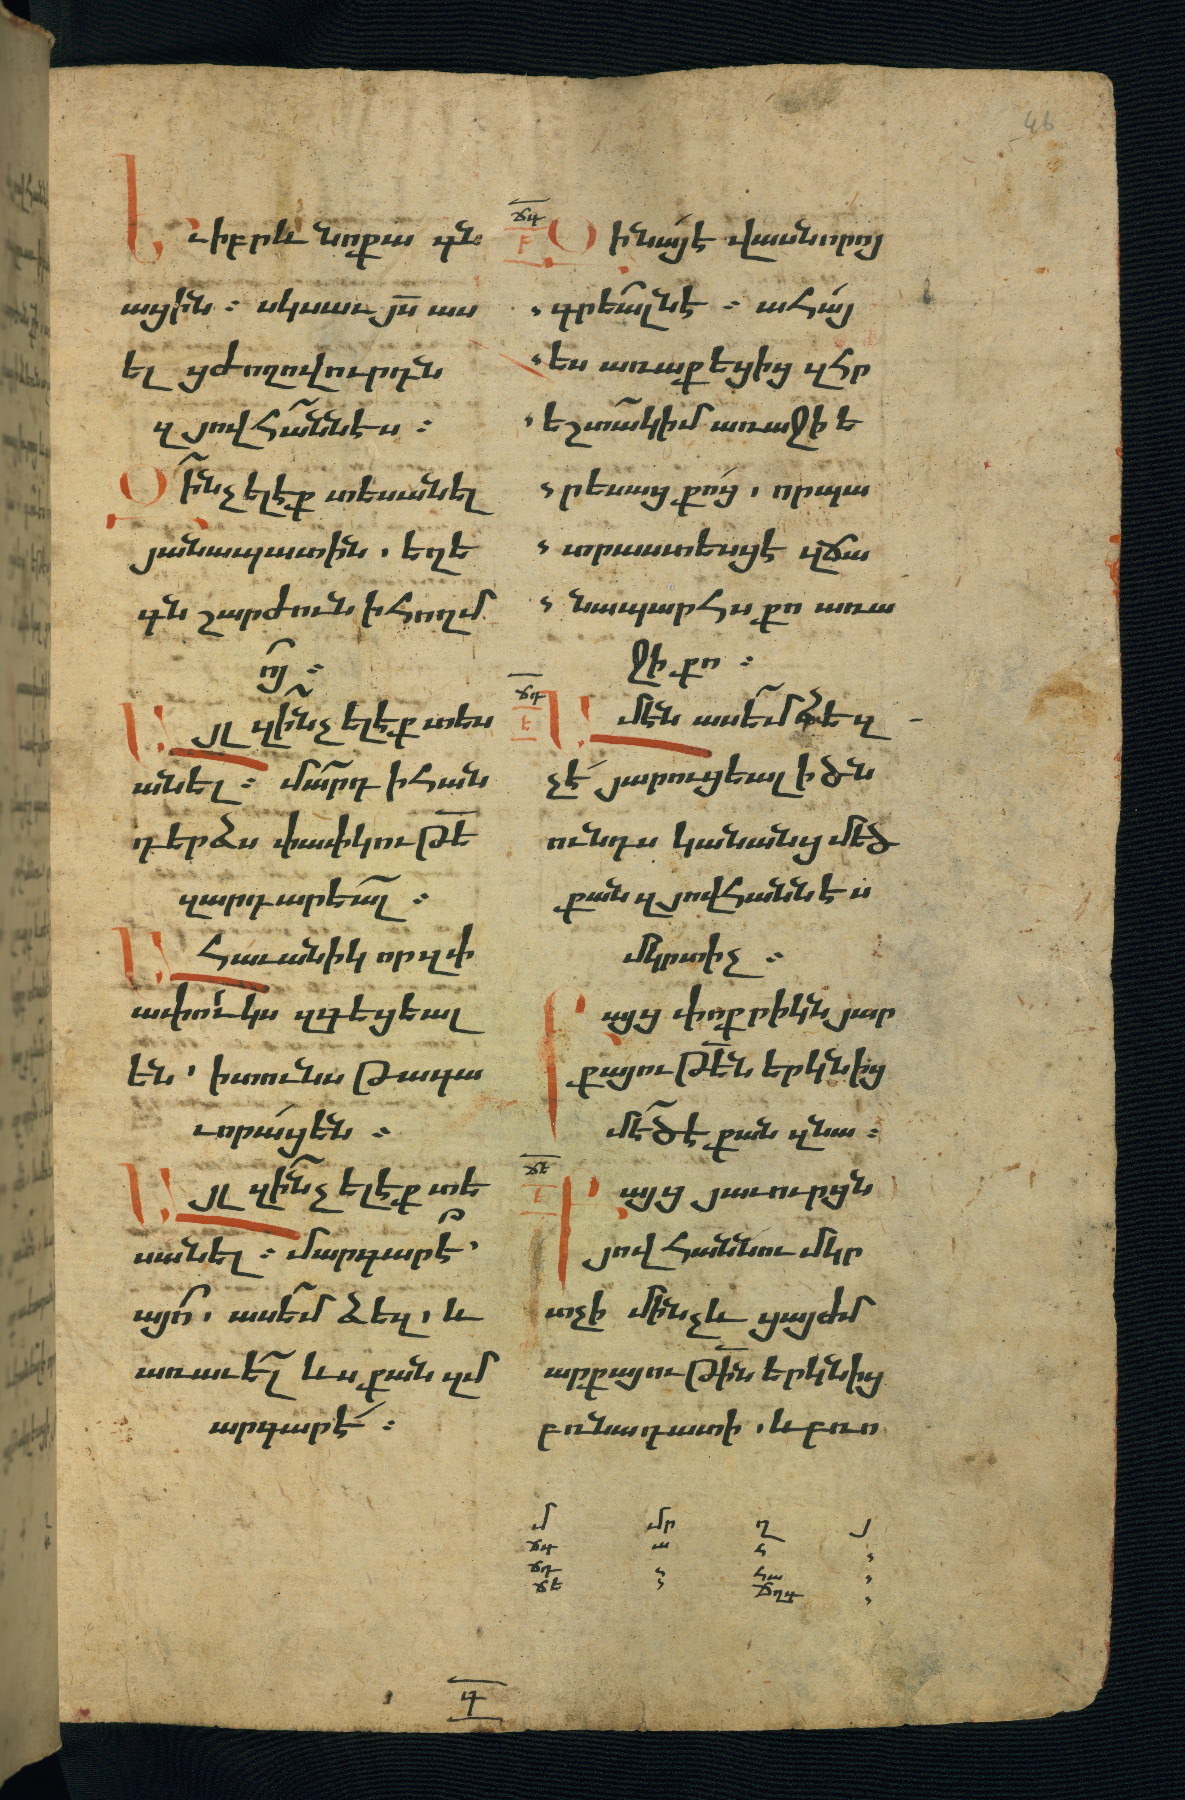 46
Եւիբրև նոքա գն
ացին ։ սկսաւ յս աս
ել ցժողովուրդն
զյովհաննէս ։
Զինչ ելէք տեսանել
յանապատին . եղե
գն շարժուն ի հողմ
ոյ ։
Այլ զինչ ելէք տես
անել ։ մարդ ի հան
դերձս փափկութե
զարդարեալ ։
Ահաւանիկ որ զփ
ափուկս զգեցեալ
են՝ ի տունս թագա
ւորացեն ։
Այլ զինչ ելէք տե
սանել ։ մարգարէ՝
այո , ասեմ ձեզ , և
առաւել ևս քան զմ
արգարէ ։
ճգ
բ
Զի նայէ վասնորոյ
գրեալնէ ։ ահայ
ես առաքեցից զհր
եշտակիմ առաջի ե
րեսաց քոց , որպա
տրաստեսցէ զճա
նապարհս քո առա
ջի քո ։
ճդ
Ամէն ասեմ ձեզ
չէ յարուցեալ ի ծն
ունդս կանանց մեծ
քան զյովհաննէս
մկրտիչ ։
Բայց փոքրիկն յար
քայութեն երկնից
մեծ է քան զնա ։
ճե
Բայց յաւուրցն
յովհաննու մկր
տչի մինչև ցայժմ
արքայութին երկնից
բռնադատի , և բռո
մ մր ղ յ
ճգ ա հ
ճդ հա
ճե ճղգ
գ